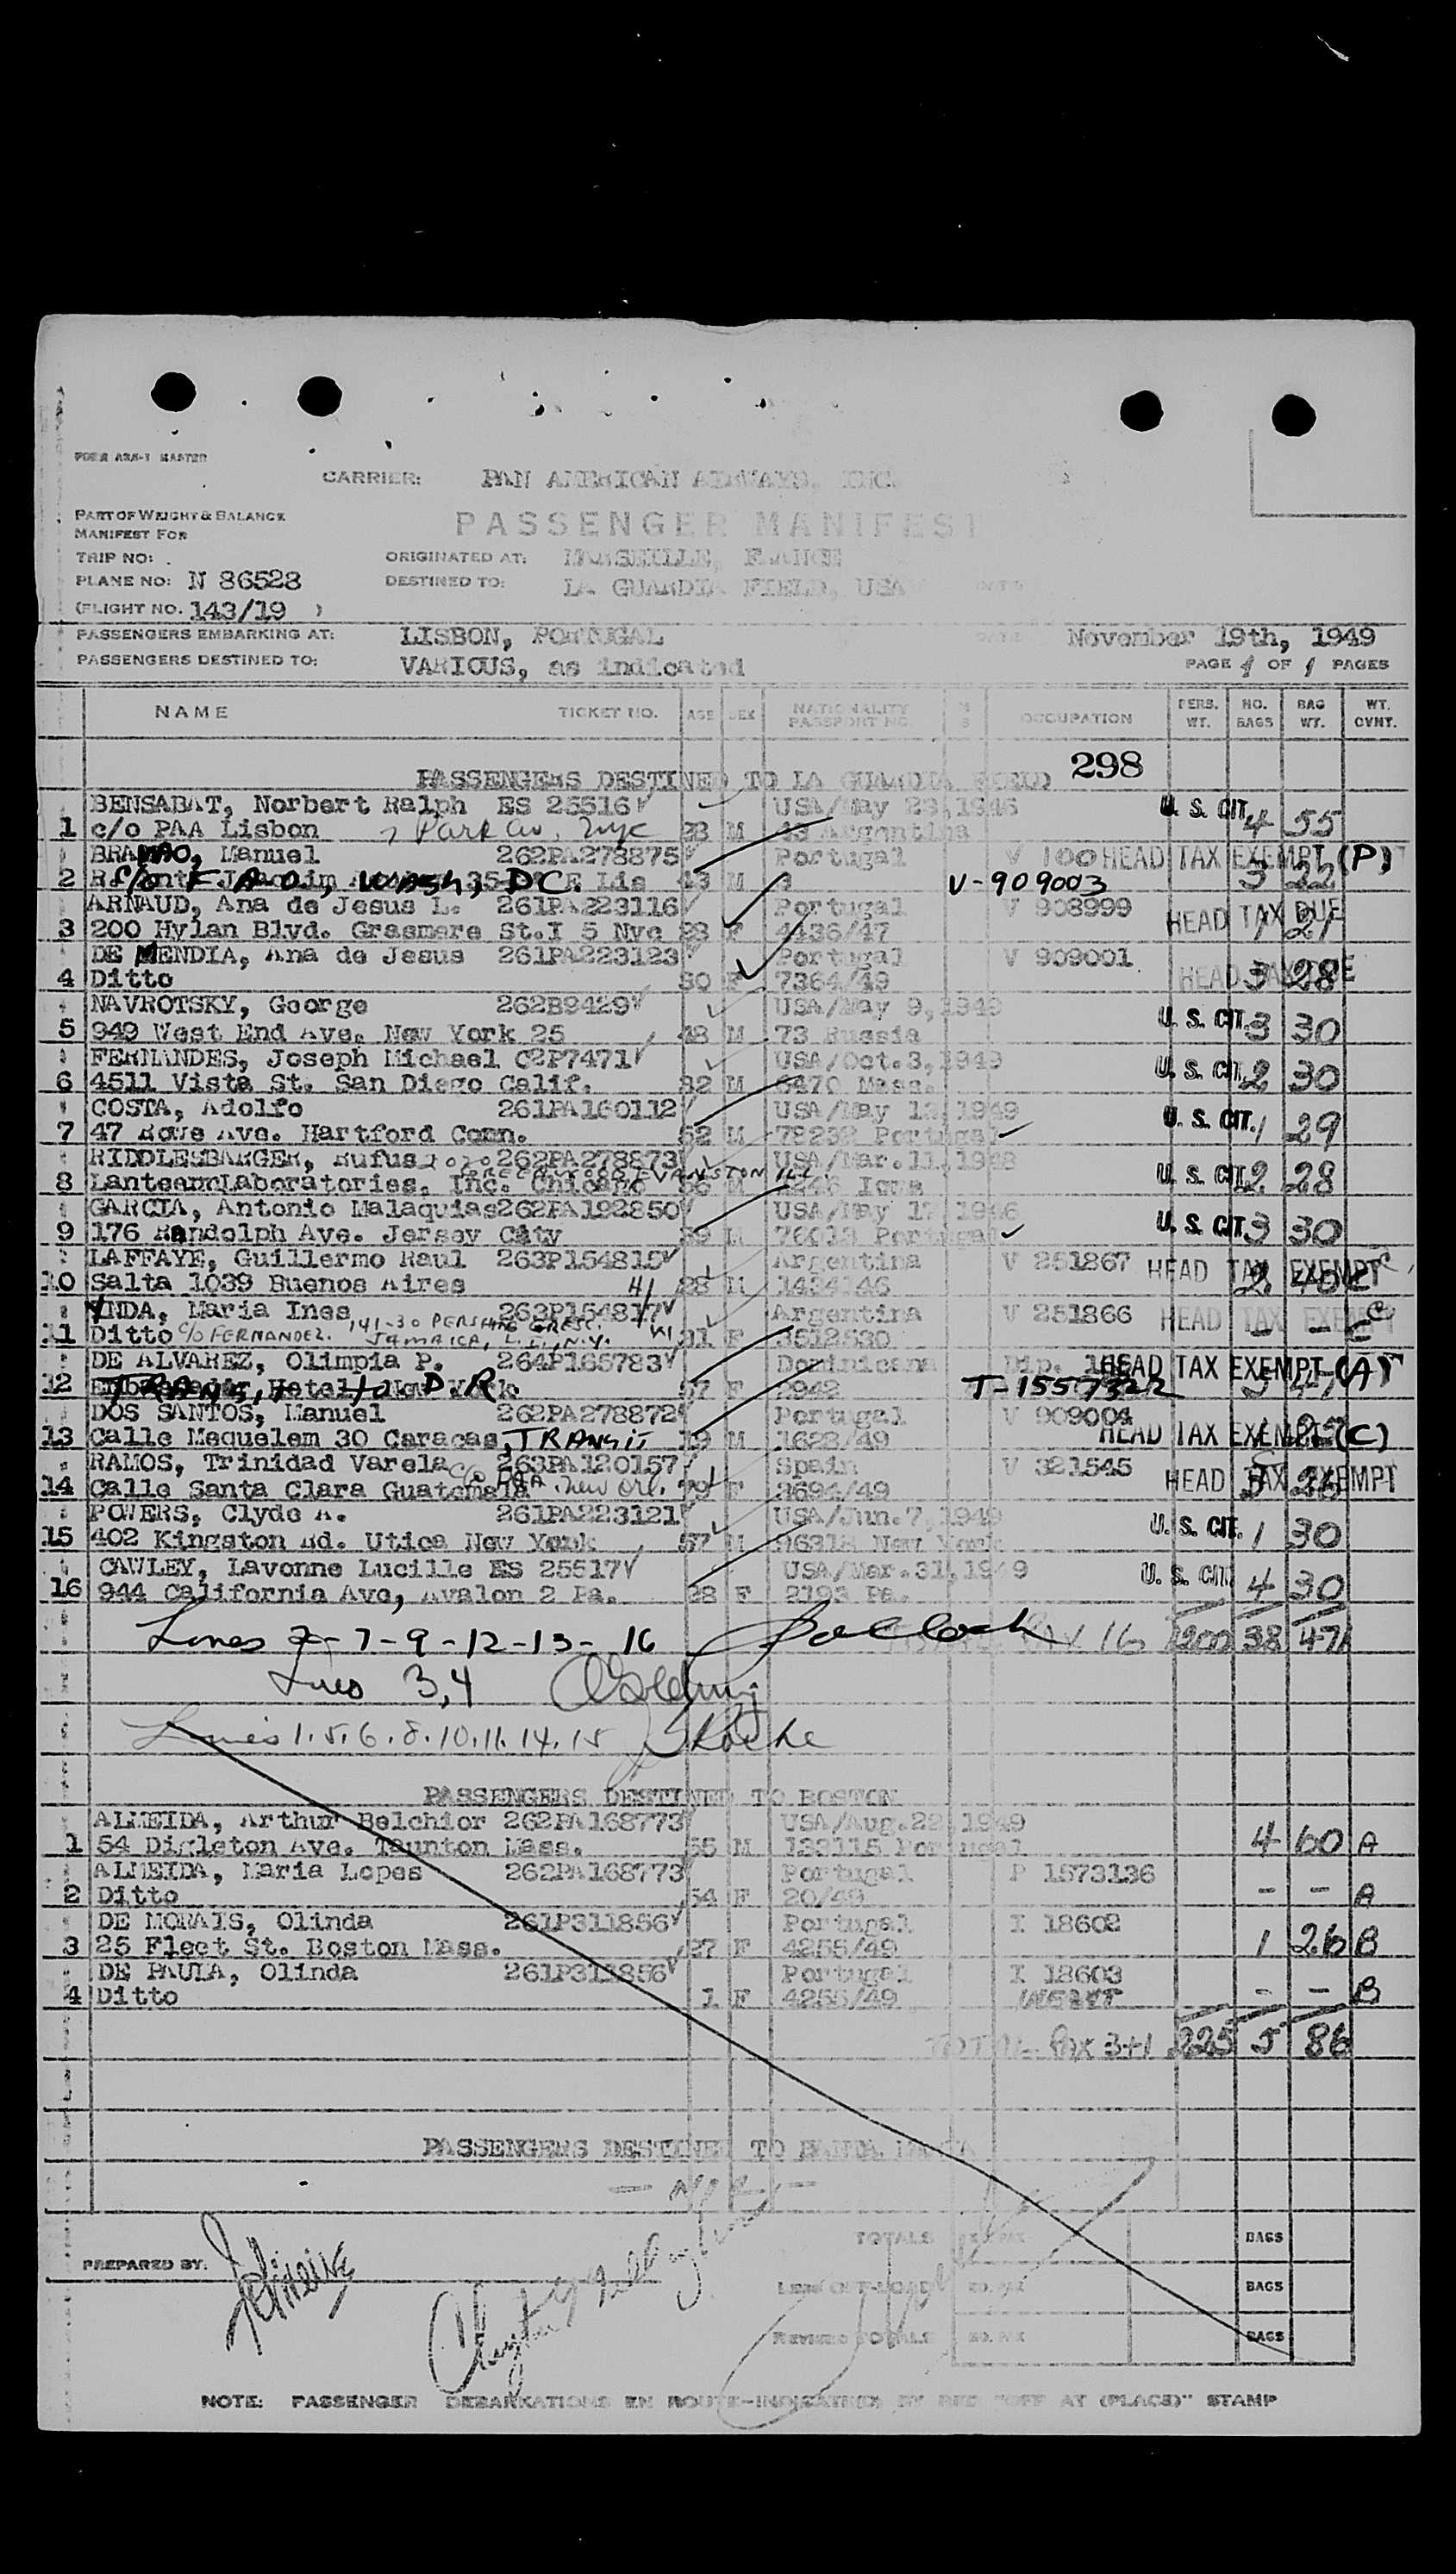 FORM ARN-1 MASTER
CARRIER: PAN AMERICAN AIRWAYS, INC.
PART OF WEIGHT & BALANCE
MANIFEST FOR
PASSENGER MANIFEST
TRIP NO:
ORIGINATED AT: MARSEILLE, FRANCE
PLANE NO: N 86528
DESTINED TO: LA GUARDIA FIELD, USA
(FLIGHT NO. 143/19 )
PASSENGERS EMBARKING AT: LISBON, PORTUGAL DATE November 19th, 1949
PASSENGERS DESTINED TO: VARIOUS, as indicated PAGE 1 OF 1 PAGES
NAME TICKET NO. AGE SEX NATIONALITY PASSPORT NO. M S OCCUPATION PERS. WT. NO. BAGS BAG WT. WT. CVNT.
298
PASSENGERS DESTINED TO LA GUARDIA FIELD
BENSABAT, Norbert Ralph ES 25516 USA/May 23,1946 U. S. CIT.
1 c/o PAA Lisbon Park Av, NYC 23 M 43 Argentina 4 55
Manuel 262PA278875 Portugal V 100 HEAD TAX EXEMPT (P)
2 c/o F A O, WASH, DC. 43 M V-909003 3 22
ARNAUD, Ana de Jesus L. 261PA223116 Portugal V 908999 HEAD TAX DUE
3 200 Hylan Blvd. Grasmere St.I 5 Nyc 28 F 4436/47 1 21
DE MENDIA, Ana de Jesus 261PA223123 Portugal V 909001
4 Ditto 30 F 7364/49 HEAD TAX DUE 3 28
NAVROTSKY, George 262B9429 USA/May 9,1949 U. S. CIT.
5 949 West End Ave. New York 25 48 M 73 Russia 3 30
FERNANDES, Joseph Michael C2P7471 USA/Oct.3,1949 U. S. CIT.
6 4511 Vista St. San Diego Calif. 32 M 6470 Mass. 2 30
COSTA, Adolfo 261PA160112 USA/May 13,1949 U. S. CIT.
7 47 Rowe Ave. Hartford Conn. 52 M 78232 Portugal 1 29
RIDDLESBARGER, Rufus 262PA278873 USA/Mar.11,1948 U. S. CIT.
8 Lanteen Laboratories, Inc. Chicago EVANSTON ILL 56 M Iowa 2 28
GARCIA, Antonio Malaquias 262PA192850 USA/May 17,1946 U. S. CIT.
9 176 Randolph Ave. Jersey City 39 M Portugal 3 30
LAFFAYE, Guillermo Raul 263P154815 Argentina V 251867 HEAD TAX EXEMPT C
10 Salta 1039 Buenos Aires 28 M 1434146 2 40 C
Maria Ines 262P154817 Argentina V 251866 HEAD TAX EXEMPT C
11 Ditto c/o FERNANDEZ. 141-30 PERSHING CRESC. JAMAICA, L.I., N.Y. 31 F 3512530 - - C
DE ALVAREZ, Olimpia P. 264P165783 Dominicana Dip. HEAD TAX EXEMPT (A)
12 TRANSIT to D.R. 57 F 2942 T-1557322
DOS SANTOS, Manuel 262PA278872 Portugal V 909004 HEAD TAX EXEMPT (C)
13 Calle Mequelem 30 Caracas, TRANSIT 19 M 1628/49
RAMOS, Trinidad Varela 263PA120157 Spain V 321545 HEAD TAX EXEMPT
14 Calle Santa Clara Guatemala c/o PAA New Orl. 79 F 3694/49
POWERS, Clyde A. 261PA223121 USA/Jun.7,1949 U. S. CIT.
15 402 Kingston Rd. Utica New York 57 M 96318 New York 1 30
CAWLEY, Lavonne Lucille ES 25517 USA/Mar.31,1949 U. S. CIT.
16 944 California Ave, Avalon 2 Pa. 28 F 2193 Pa. 4 30
Lines 2-7-9-12-13-16 PAX 16 38 471
Lines 3,4
Lines 1.5.6.8.10.11.14.15
PASSENGERS DESTINED TO BOSTON
ALMEIDA, Arthur Belchior 262PA168773 USA/Aug.22,1949
1 54 Digleton Ave. Taunton Mass. 55 M 133115 Portugal 4 60 A
ALMEIDA, Maria Lopes 262PA168773 Portugal P 1573136
2 Ditto 54 F 20/49 - - A
DE MORAIS, Olinda 261P311856 Portugal I 18602
3 25 Fleet St. Boston Mass. 27 F 4255/49 1 26 B
DE PAULA, Olinda 261P311856 Portugal I 18603
4 Ditto 1 F 4255/49 INFANT - - B
TOTAL PAX 3+1 225 5 86
PASSENGERS DESTINED TO SANTA MARIA
- NIL -
TOTALS NO. PAX BAGS
PREPARED BY:
LESS OFF-LOAD NO. PAX BAGS
REVISED TOTALS NO. PAX BAGS
NOTE: PASSENGER DEBARKATIONS EN ROUTE-INDICATED BY RED "OFF AT (PLACE)" STAMP